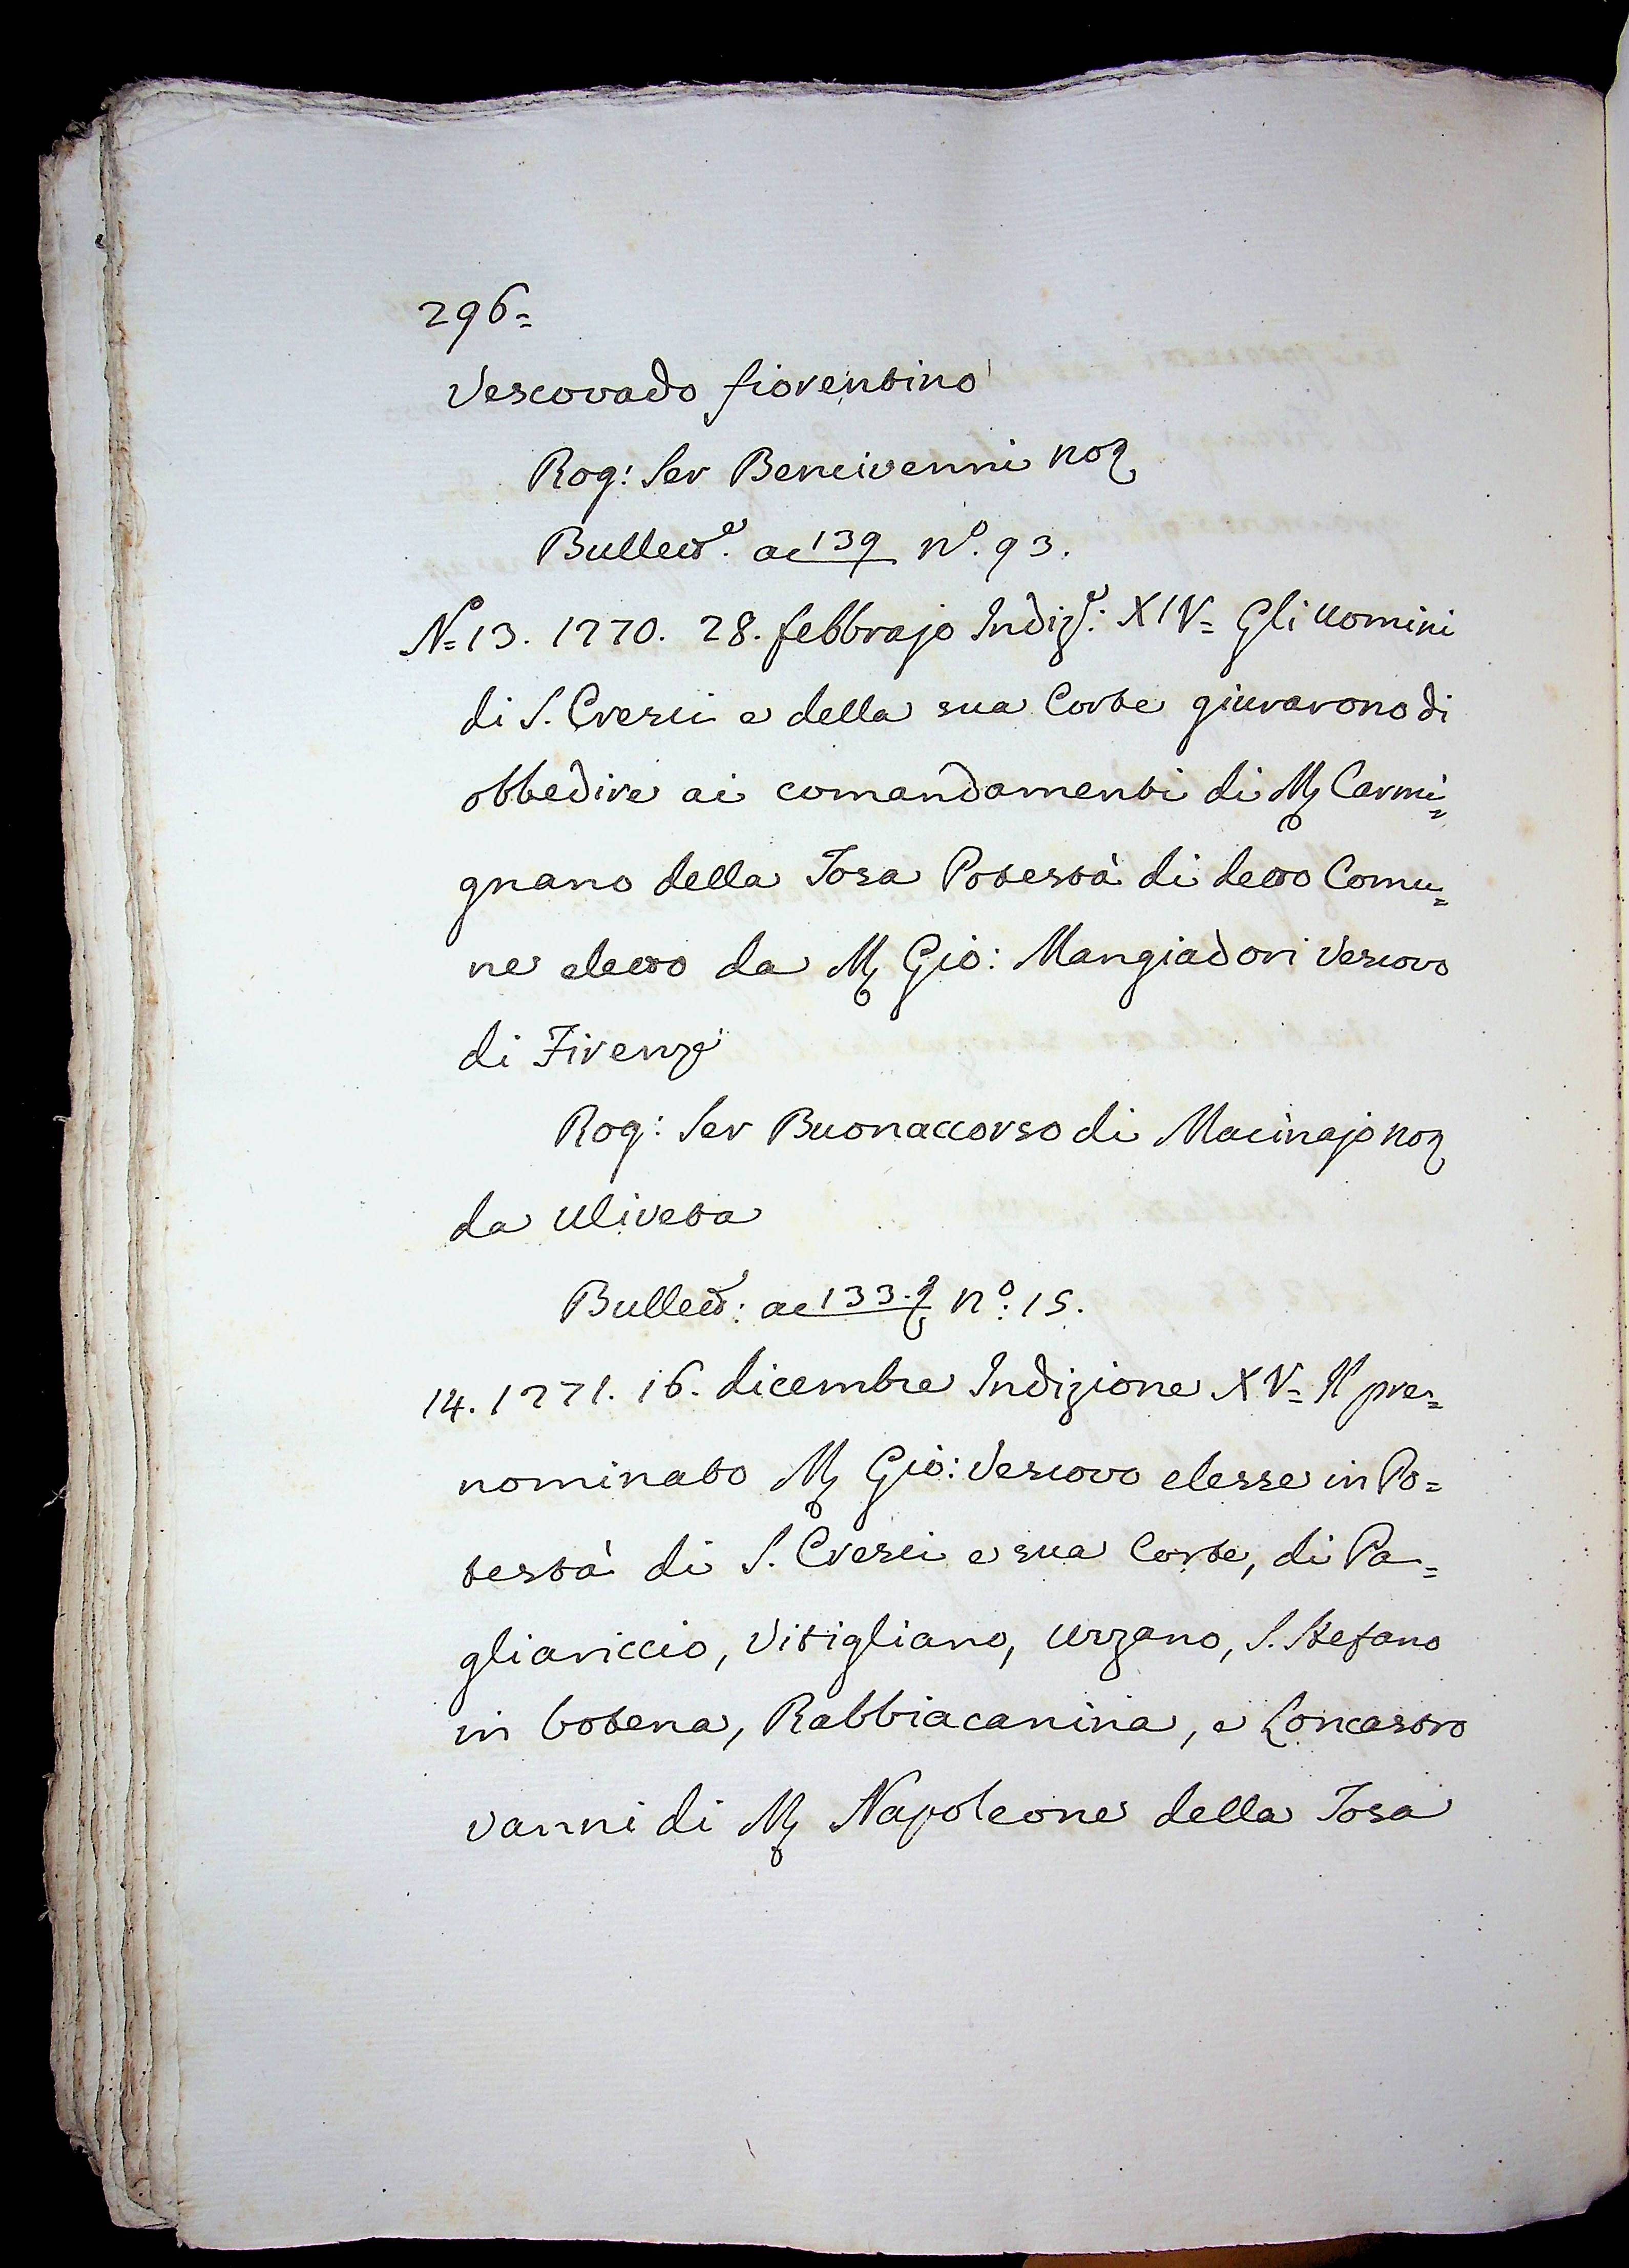 296=
Vescovado fiorentino
Rog: Ser Bencivenni not
Bullett.e ac 139 n.o 93.
N.o 13. 1270. 28. febbrajo Indiz.e: XIV= Gli uomini
di S. Cresci e della sua Corte giurarono di
obbedire ai comandamenti di M Carmi=
gnano della Tosa Potestà di detto Comu=
ne eletto da M Gio: Mangiadori Vescovo
di Firenze
Rog: Ser Buonaccorso di Macinajo not
da Uliveta
Bullett: ac 133. n.o: 15.
14. 1271. 16. dicembre Indizione XV= Il pre=
nominato M Gio: Vescovo elesse in Po=
testà di S. Cresci e sua Corte, di Pa=
gliariccio, Vitigliano, Urzano, S. Stefano
in botena, Rabbiacanina, e Loncastro
Vanni di M Napoleone della Tosa